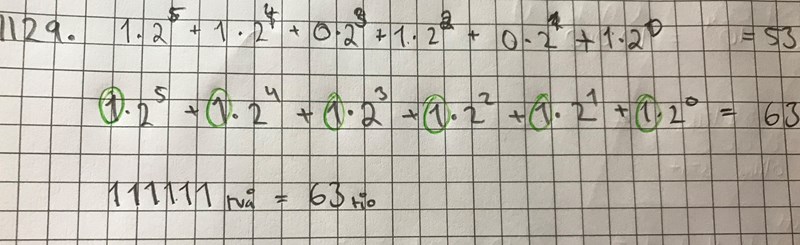 1129. 1·2⁵ + 1·2⁴ + 0·2³ + 1·2² + 0·2¹ + 1·2⁰ = 53
1·2⁵ + 1·2⁴ + 1·2³ + 1·2² + 1·2¹ + 1·2⁰ = 63
111111 två = 63 tio